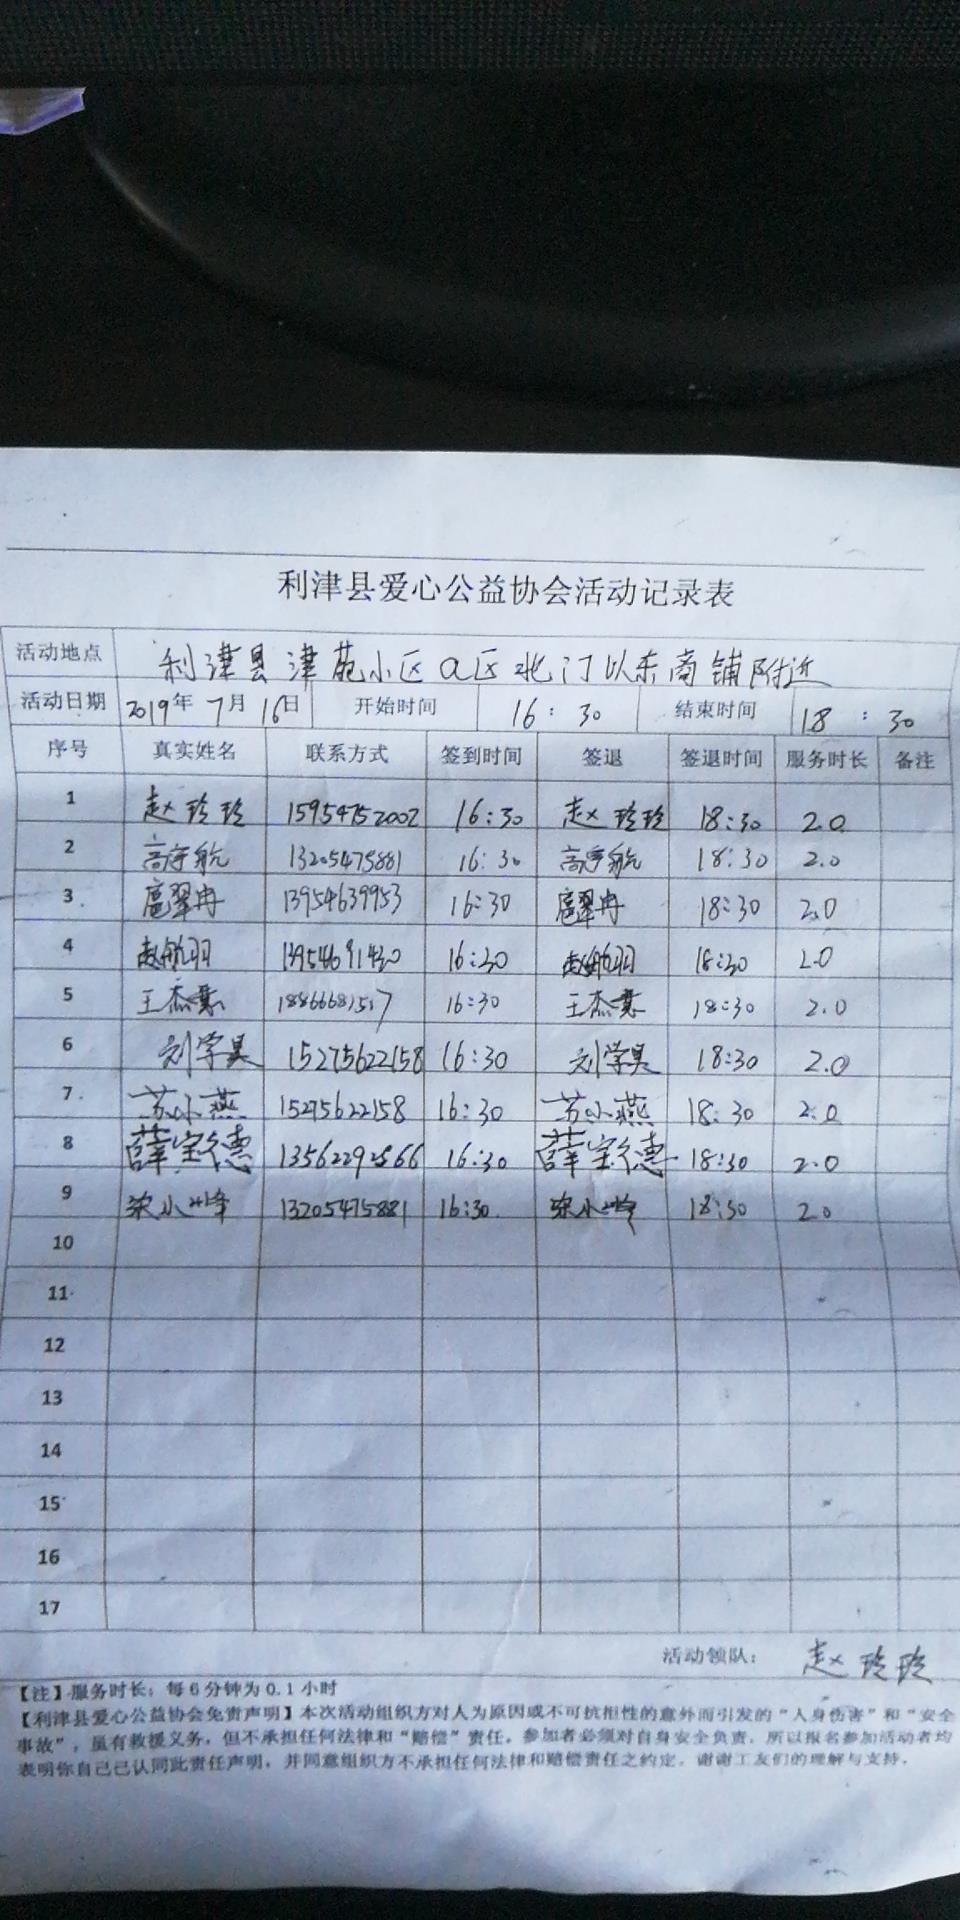 利津县爱心公益协会活动记录表
活动地点 利津县津苑小区a区北门以东商铺附近
活动日期 2019年7月16日 开始时间 16:30 结束时间 18:30
序号 真实姓名 联系方式 签到时间 签退 签退时间 服务时长 备注
1 赵玲玲 15954752002 16:30 赵玲玲 18:30 2.0
2 高宇航 13205475881 16:30 高宇航 18:30 2.0
3 扈翠冉 13954639953 16:30 扈翠冉 18:30 2.0
4 赵航羽 16:30 赵航羽 18:30 2.0
5 王杰 16:30 王杰 18:30 2.0
6 刘学昊 15275622158 16:30 刘学昊 18:30 2.0
7 苏小燕 15275622158 16:30 苏小燕 18:30 2.0
8 薛宝德 16:30 薛宝德 18:30 2.0
9 梁小峰 13205475881 16:30 梁小峰 18:30 2.0
10
11
12
13
14
15
16
17
活动领队: 赵玲玲
【注】服务时长:每6分钟为0.1小时
【利津县爱心公益协会免责声明】本次活动组织方对人为原因或不可抗拒性的意外而引发的“人身伤害”和“安全
事故”,虽有救援义务,但不承担任何法律和“赔偿”责任。参加者必须对自身安全负责,所以报名参加活动者均
表明你自己已认同此责任声明,并同意组织方不承担任何法律和赔偿责任之约定。谢谢工友们的理解与支持。